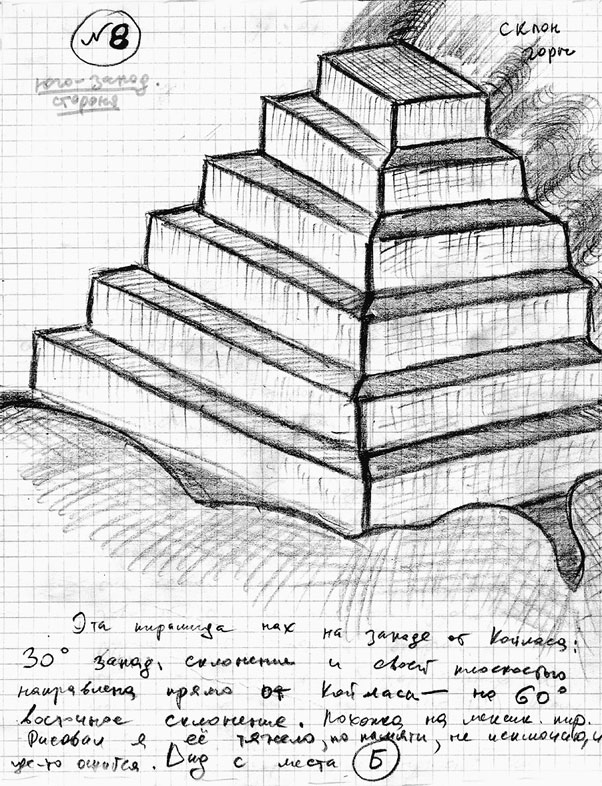 № 8
юго-запад.
сторона
склон
горы
Эта пирамида нах на западе от Кайласа:
30° запад. склонение и своей плоскостью
направлена прямо от Кайласа — на 60°
восточное склонение. Похожа на мексик. пир.
Рисовал я её тяжело, по памяти, не исключаю,
где-то ошибся. Вид с места Б